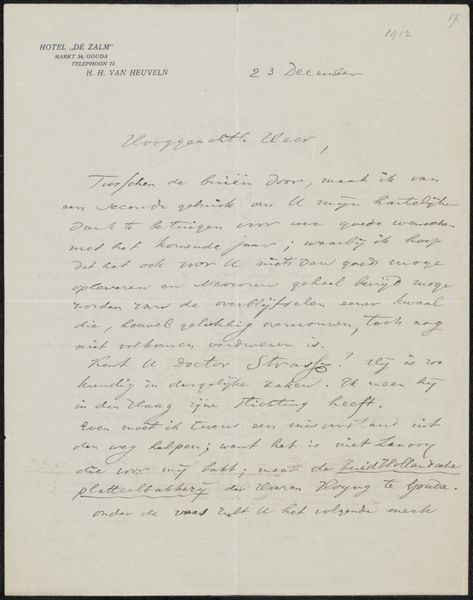 17.
1912
HOTEL „DE ZALM"
MARKT 34, GOUDA
TELEPHOON 72
H. H. VAN HEUVELN
23 December
Hooggeachte Heer,
Tusschen de buiën door, maak ik van
een seconde gebruik om U mijn hartelijke
dank te betuigen voor uwe goede wenschen
met het komende jaar; waarbij ik hoop
dat het ook voor U niets dan goeds moge
opleveren en Mevrouw geheel bevrijd moge
worden van de overblijfselen eener kwaal
die, hoewel gelukkig overwonnen, toch nog
niet volkomen verdwenen is.
Kent U Doctor ? Hij is zoo
kundig in dergelijke zaken. Ik meen hij
in den Haag zijne stichting heeft.
Even moet ik tevens een misverstand uit
den weg helpen; want het is niet Lanooy
die voor mij bakt; maar de Zuid Hollandsche
plateelbakkerij der Heeren Hoyng te Gouda.
onder de vaas zult U het volgende merk